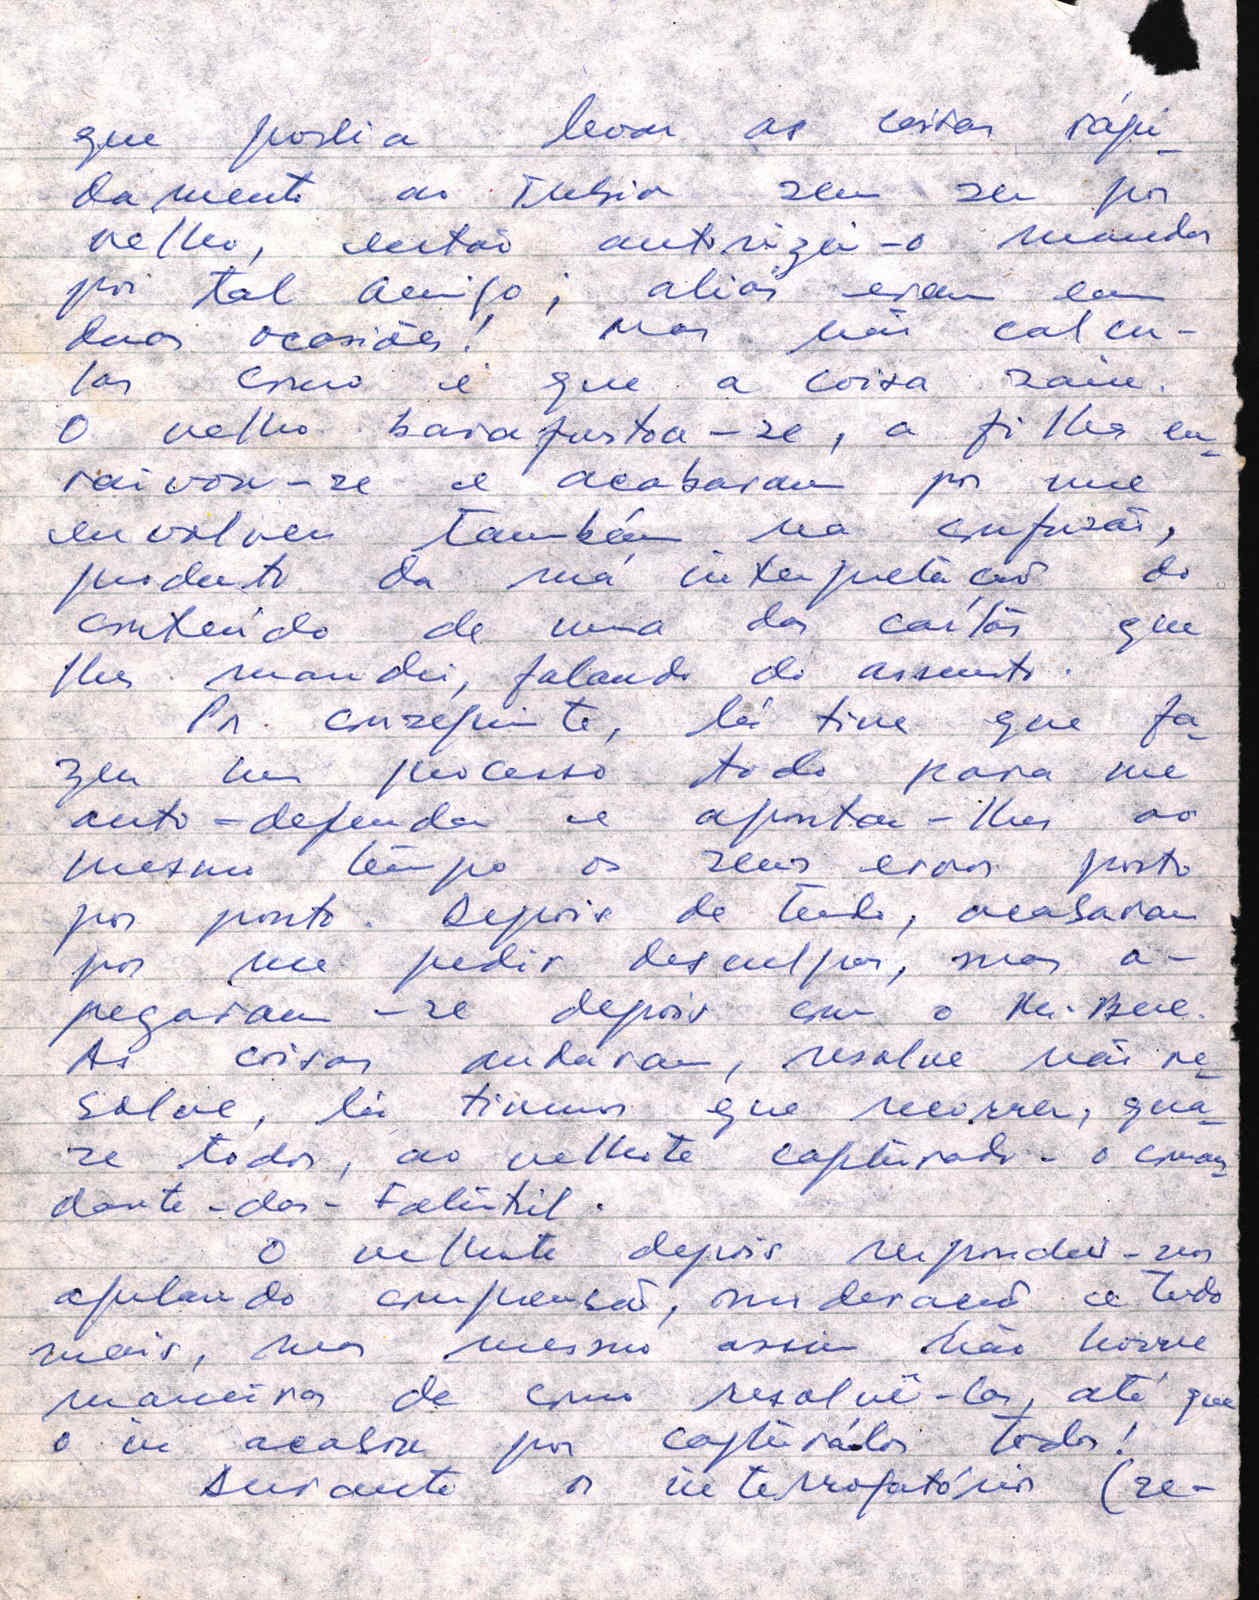 que podia levar as coisas rápi-
damente ao sem ser por
velho, então autorizei-o mandar
por tal amigo; aliás eram em
duas ocasiões! Mas não calcu-
las como é que a coisa saiu.
O velho barafustou-se, a filha en-
raivou-se e acabaram por me
envolver também na confusão,
produto da má interpretação do
conteúdo de uma das cartas que
lhes mandei, falando do assunto.
Por conseguinte, lá tive que fa-
zer um processo todo para me
auto-defender e apontar-lhes ao
mesmo tempo os seus erros ponto
por ponto. Depois de tudo, acabaram
por me pedir desculpas, mas a-
pegaram-se depois com o
As coisas andaram, resolve não re-
solve, lá tivemos que recorrer, qua-
se todos, ao velhote capturado - o coman-
dante-das-Falintil.
O velhote depois respondeu-nos
apelando compreensão, moderação e tudo
mais, mas mesmo assim não houve
maneiras de como resolvê-los, até que
o in acabou por capturá-los todos!
Durante os interrogatórios (se-